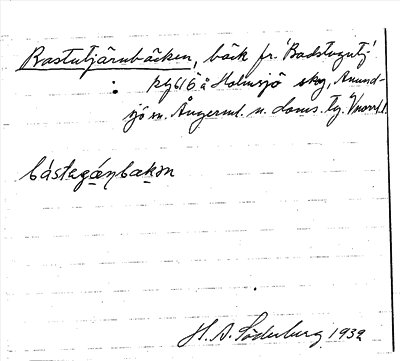 Bastutjärnbäcken, bäck fr. 'Badstugutj-'
: å Holmsjö skog, Anund-
sjö sn. Ångerml. n. doms. tg. Vnorrl. l.
bástagá̱ŋbaḵən
H. A. Söderberg 1932